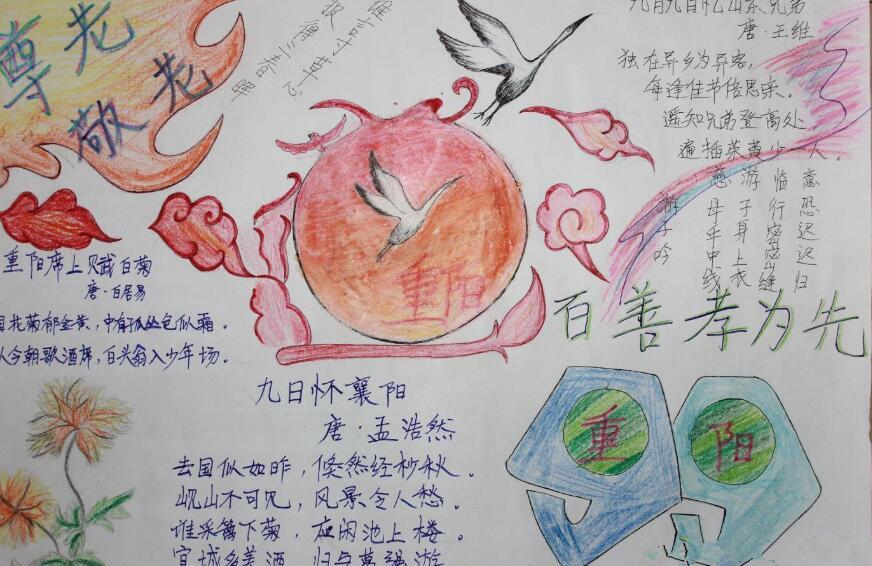 尊老
敬老
谁言寸草心
报得三春晖
九月九日忆山东兄弟
唐·王维
独在异乡为异客，
每逢佳节倍思亲。
遥知兄弟登高处，
遍插茱萸少一人。
游子吟
慈母手中线
游子身上衣
临行密密缝
意恐迟迟归
重阳
百善孝为先
重阳席上赋白菊
唐·白居易
花菊郁金黄，中有孤丛色似霜。
今朝歌酒席，白头翁入少年场。
九日怀襄阳
唐·孟浩然
去国似如昨，倏然经杪秋。
岘山不可见，风景令人愁。
谁采篱下菊，应闲池上楼。
宜城多美酒，归与葛强游
重阳